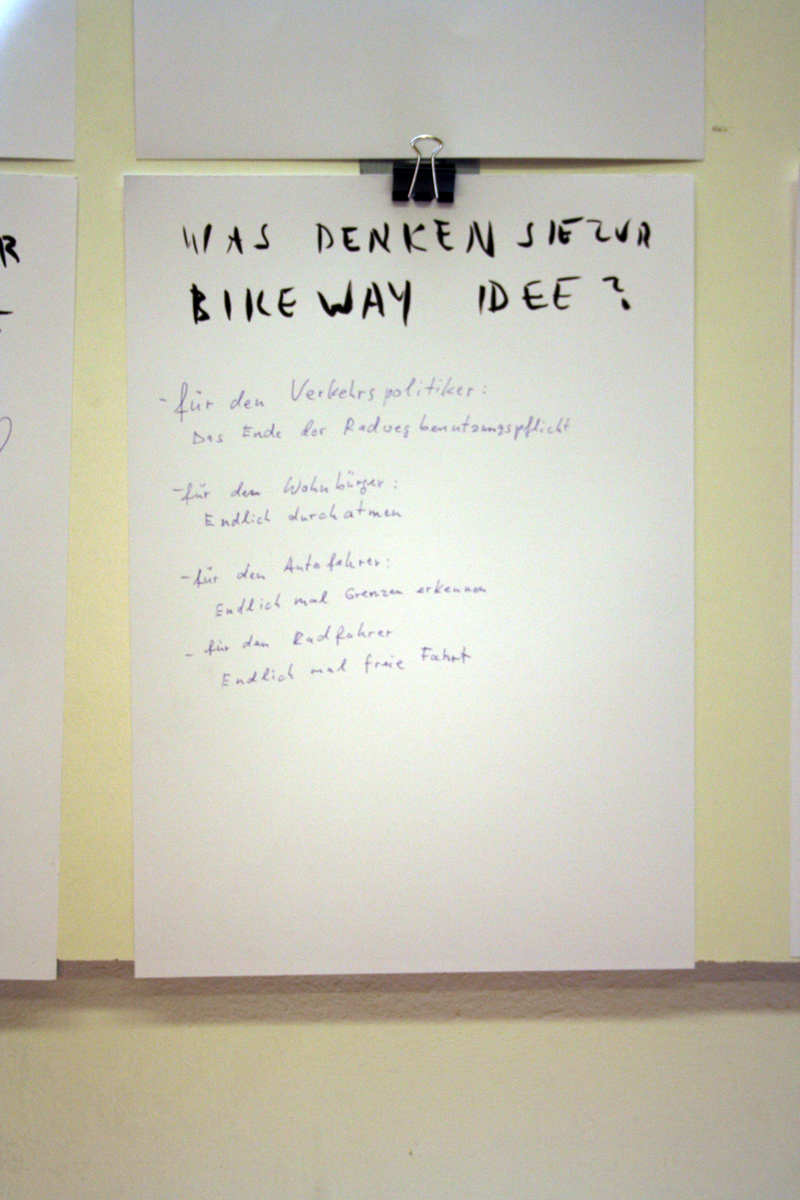 WAS DENKEN SIE ZUR
BIKEWAY IDEE?
- für den Verkehrspolitiker:
Das Ende der Radwegbenutzungspflicht
- für den Wohnbürger:
Endlich durchatmen
- für den Autofahrer:
Endlich mal Grenzen erkennen
- für den Radfahrer
Endlich mal freie Fahrt
R